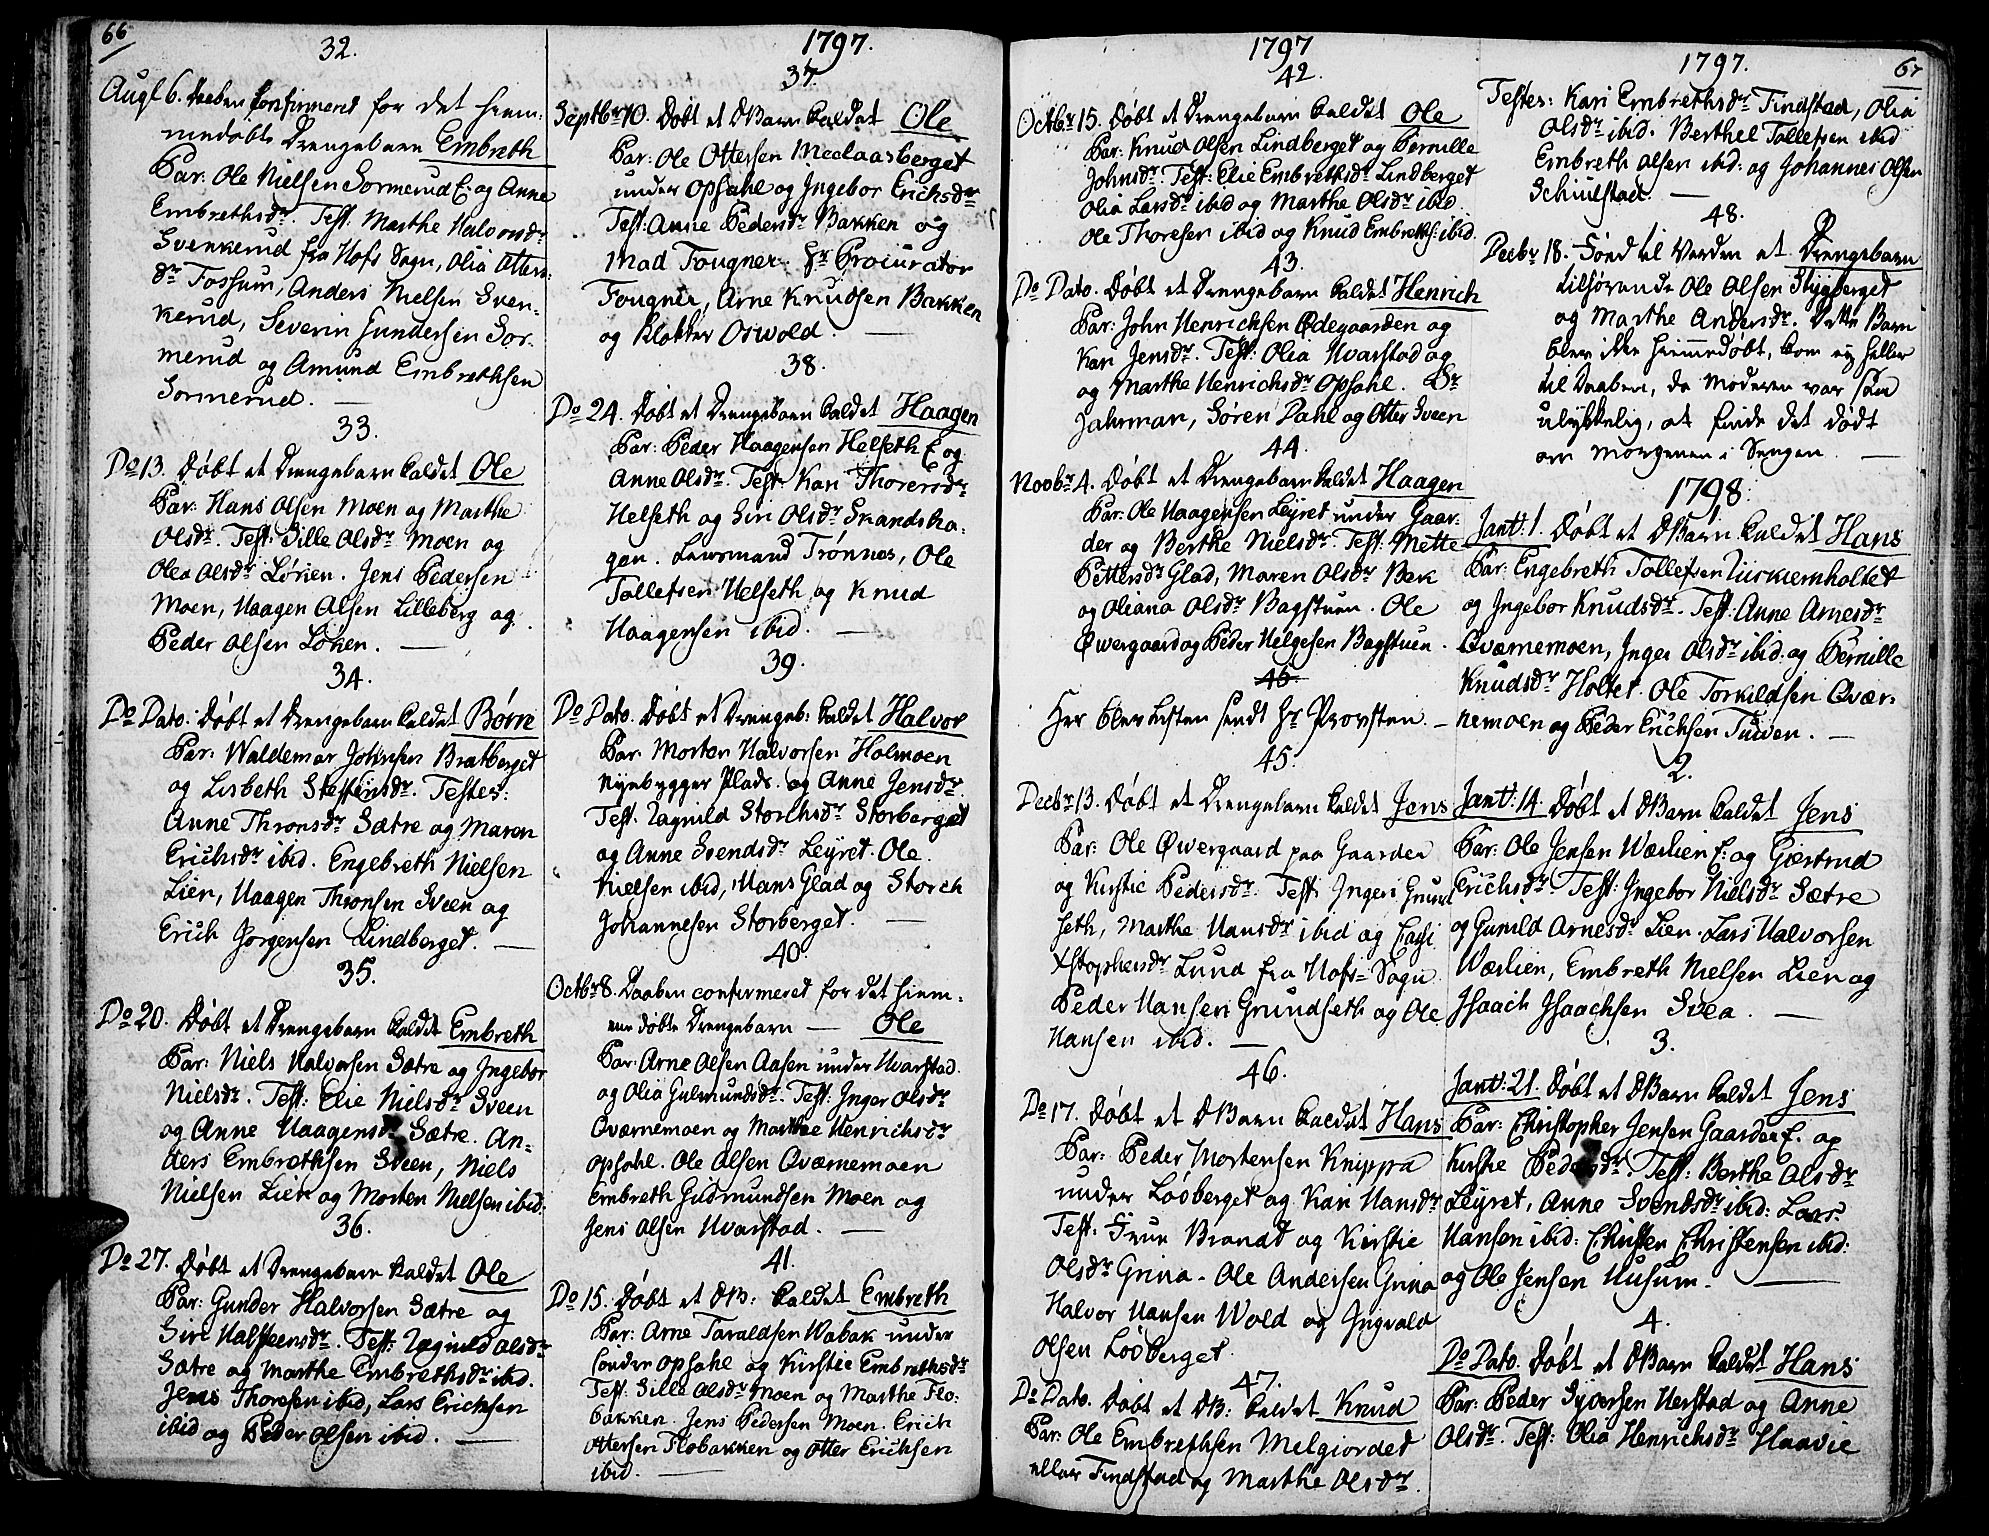 66
32.
Augt 6. Daaben Confirmeret for det hiem-
medøbte Drengebarn Embreth
Par: Ole Nielsen Sormerud E. og Anne
Embrethsdr. Test. Marthe Halvorsdr
Svenkerud fra Hofs Sogn, Olia Otters
dr Fossum, Anders Nielsen Sven-
kerud, Severin Gundersen Sor-
merud og Amund Embrethsen
Sormerud.
33.
Do 13. Døbt et Drengebarn kaldet Ole
Par: Hans Olsen Moen og Marthe
Olsdr. Test: Sille Olsdr Moen og
Olea Olsdr Løken. Jens Pedersen
Moen, Haagen Olsen Lilleberg og
Peder Olsen Løken.
34.
Do Dato. Døbt et Drengebarn kaldet Børre
Par: Waldemar Johnsen Bratberget
og Lisbeth Steffensdr. Testes:
Anne Thronsdr Sætre og Maren
Erichsdr ibid. Engebreth Nielsen
Lien, Haagen Thronsen Sveen og
Erich Jørgensen Lindberget.
35.
Do 20. Døbt et Drengebarn kaldet Embreth
Par: Niels Halvorsen Sætre og Ingebor
Nielsdr. Test: Elie Nielsdr Sveen
og Anne Haagensdr Sætre. An-
ders Embrethsen Sveen, Niels
Nielsen Lien og Morten Nielsen ibid.
36.
Do 27. Døbt et Drengebarn kaldet Ole
Par: Gunder Halvorsen Sætre og
Siri Halsteensdr. Test: Ragnild Olsdr
Sætre og Marthe Embrethsdr ibid.
Jens Thoresen ibid, Lars Erichsen
ibid og Peder Olsen ibid.
1797.
37.
Septbr 10. Døbt et DBarn kaldet Ole
Par: Ole Ottersen Meclaasberget
under Opsahl og Ingebor Erichsdr
Test: Anne Pedersdr Bakken og
Mad Fougner. Hr Procurator
Fougner, Arne Knudsen Bakken
og Klokker Oswold.
38.
Do 24. Døbt et Drengebarn kaldet Haagen
Par: Peder Haagensen Helseth E. og
Anne Olsdr. Test: Kari Thoresdr
Helseth og Siri Olsdr Skandsha-
gen. Lensmand Trønnes, Ole
Tollefsen Helseth og Knud
Haagensen ibid.
39.
Do Dato. Døbt et Drengeb: kaldet Halvor
Par: Morten Halvorsen Holmoen
Nyebygger Plads og Anne Jensdr.
Test. Ragnild Storchsdr Storberget
og Anne Svendsdr Leyret. Ole
Nielsen ibid, Hans Glad og Storch
Johannesen Storberget.
40.
Octbr 8. Daaben confirmeret for det hiem-
me døbte Drengebarn — Ole
Par: Arne Olsen Aasen under Hvarstad
og Olia Gulmundsdr. Test: Inger Olsdr
Qværnemoen og Marthe Henrichsdr
Opsahl. Ole Olsen Qværnemoen
Embreth Gudmundsen Moen og
Jens Olsen Hvarstad.
41.
Do 15. Døbt et DB: kaldet Embreth
Par: Arne Taraldsen Wabak under
Sønder Opsahl og Kirstie Embrethsdr
Test: Sille Olsdr Moen og Marthe Flo-
bakken. Jens Pedersen Moen. Erich
Ottersen Flobakken og Otter Erichsen
ibid.
1797
42.
Octbr 15. Døbt et Drengebarn kaldet Ole
Par: Knud Olsen Lindberget og Pernille
Johnsdr. Test: Elie Embrethsdr Lindberget
Olia Larsdr ibid og Marthe Olsdr ibid.
Ole Thoresen ibid og Knud Embreths: ibid.
43.
Do Dato. Døbt et Drengebarn kaldet Henrich
Par: John Henrichsen Ødegaarden og
Kari Jensdr. Test: Olia Hvarstad og
og Marthe Henrichsdr Opsahl. Sr
Jahrman, Søren Dahl og Otter Sveen
44.
Novbr 4. Døbt et Drengebarn kaldet Haagen
Par: Ole Haagensen Leyret under Gaar-
der og Berthe Nielsdr. Test: Mette
Pettersdr Glad, Maren Olsdr Bak
og Oliana Olsdr Bagstuen. Ole
Øwergaard og Peder Helgesen Bagstuen.
45.
Her blev Listen sendt Hr Provsten.
45.
Decbr 13. Døbt et Drengebarn kaldet Jens
Par: Ole Øwergaard paa Gaarder
og Kirstie Pedersdr. Test: Ingeri Grund
seth, Marthe Hansdr ibid og
Xstophersdr Lund fra Hofs-Sogn.
Peder Hansen Grundseth og Ole
Hansen ibid.
46.
Do 17. Døbt et DBarn kaldet Hans
Par: Peder Mortensen Knippa
under Løvberget og Kari Hansdr
Test: Frue Brandt og Kirstie
Olsdr Grina. Ole Andersen Grina
Halvor Hansen Wold og Ingvald
Olsen Løvberget.
47.
Do Dato. Døbt et DB: kaldet Knud
Par: Ole Embrethsen Melgiordet
eller Findstad og Marthe Olsdr.
1797.
67
Testes: Kari Embrethsdr Findstad, Olia
Olsdr ibid. Berthel Tollefsen ibid
Embreth Olsen ibid: og Johannes Olsen
Schiulstad.
48.
Decbr 18. Fød til Verden et Drengebarn
tilhørende Ole Olsen Stygberget
og Marthe Andersdr. Dette Barn
blev ikke hiemmedøbt, kom ey heller
til Daaben, da Moderen var saa
ulykkelig, at finde det dødt
om Morgenen i Sengen.
1798
Janv: 1. Døbt et DBarn kaldet Hans
Par: Engebreth Tollefsen Kirkiemholtet
og Ingebor Knudsdr. Test: Anne Arnesdr
Qværnemoen, Inger Olsdr ibid: og Pernille
Knudsdr Holtet. Ole Torkildsen Qvær-
nemoen og Peder Erichsen Tuven.
2.
Janv: 14. Døbt et DBarn kaldet Jens
Par: Ole Jensen Wærlien E. og Giertrud
Erichsdr. Test: Ingebor Nielsdr Sætre
og Gunild Arnesdr Lien. Lars Halvorsen
Wærlien, Embreth Nielsen Lien og
Isaach Isaachsen Svea.
3.
Janv: 21. Døbt et DBarn kaldet Jens
Par: Christopher Jensen Gaarder E. og
Kirstie Pedersdr. Test: Berthe Olsdr
Leyret, Anne Svendsdr ibid: Lars
Hansen ibid: Christen Christensen ibid:
og Ole Jensen Husum.
4.
Do Dato. Døbt et DBarn kaldet Hans
Par: Peder Syversen Herstad og Anne
Olsdr. Test: Olia Henrichsdr Haavie